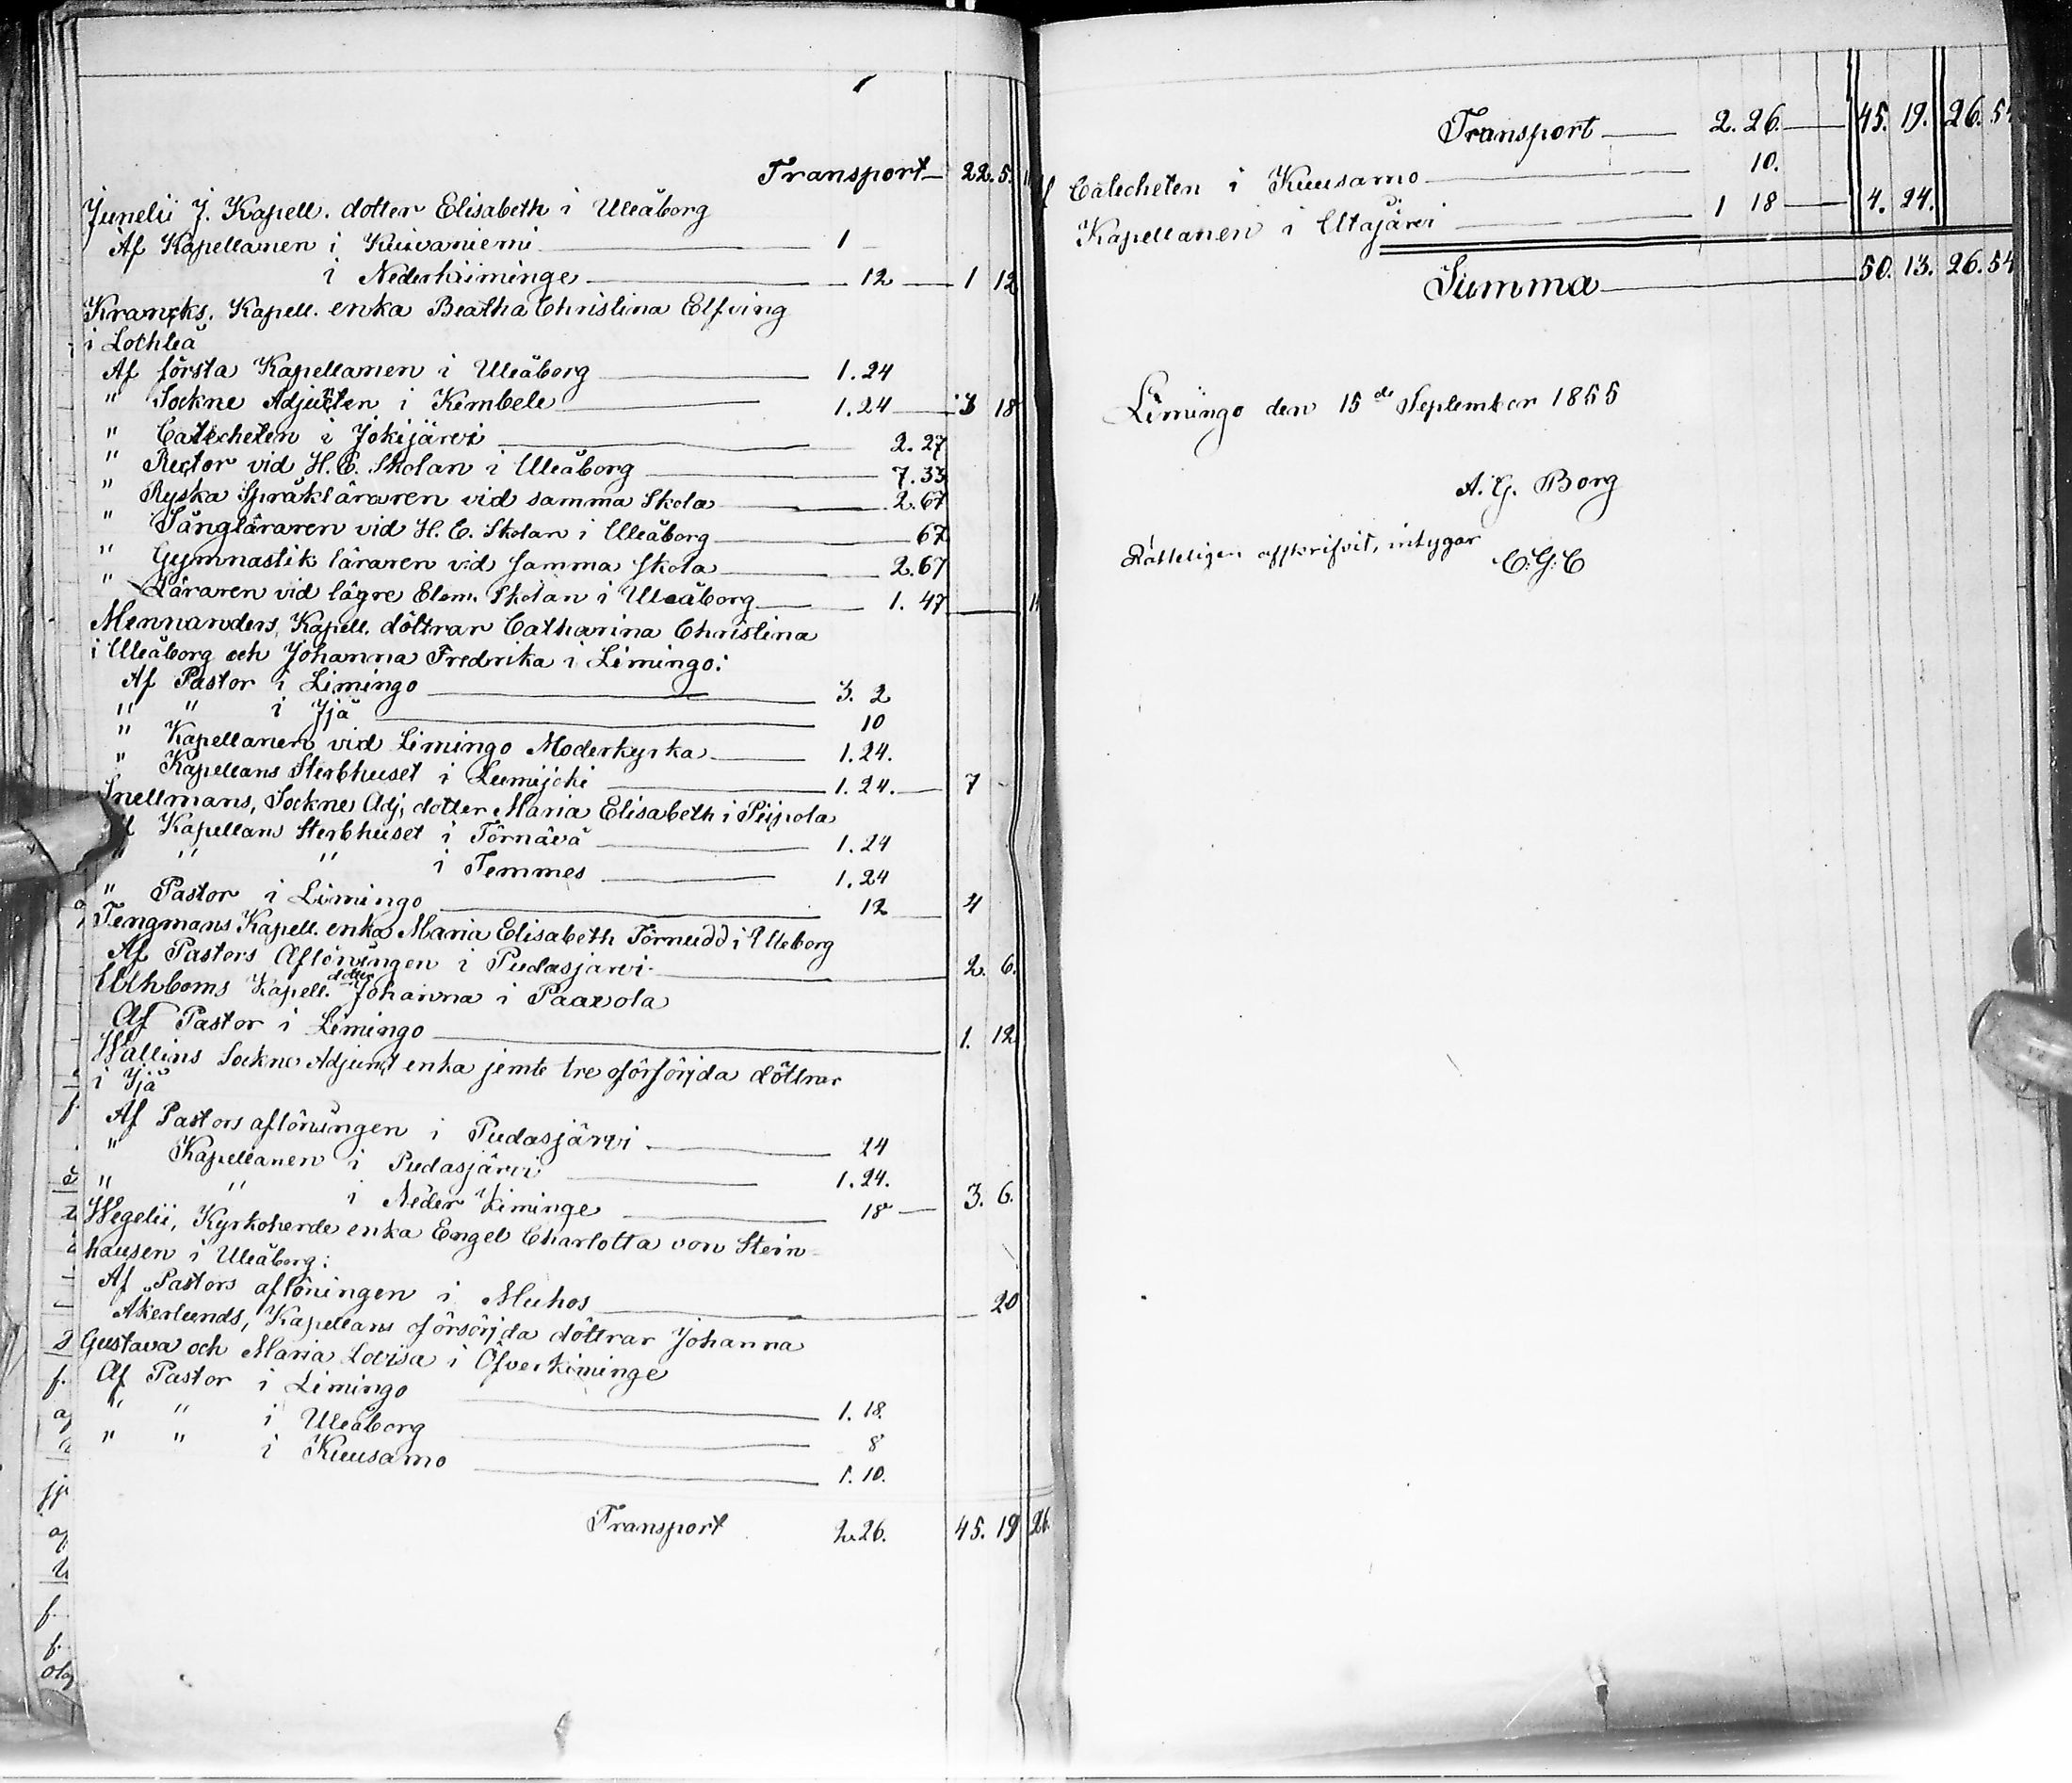 Transport — 22. 5.
Junelii J. Kapell. dotter Elisabeth i Uleåborg
Af Kapellanen i Kuivaniemi — 1 —
i Nederkiiminge — 12 — 1 12
Krancks, Kapell. enka Beatha Christina Elfving
i Lochteå
Af första Kapellanen i Uleåborg — 1.24
" Sockne Adjuncten i Kembele — 1.24 — 3 18
" Catecheten i Jokijärvi — 2.27
" Rector vid H. E. Skolan i Uleåborg — 7.33
" Ryska Språkläraren vid samma Skola — 2.67
" Sångläraren vid H. E. Skolan i Uleåborg — 67
" Gymnastik läraren vid samma skola — 2.67
" Läraren vid lägre Elem. Skolan i Uleåborg — 1.47
Mennanders, Kapell. döttrar Catharina Christina
i Uleåborg och Johanna Fredrika i Limingo:
Af Pastor i Limingo — 3. 2
" " i Ijå — 10
" Kapellanen vid Limingo Moderkyrka — 1.24.
" Kapellans Sterbhuset i Lumijoki — 1.24. — 7 -
Snellmans, Sockne Adj, dotter Maria Elisabeth i Piipola
Kapellans Sterbhuset i Törnävä — 1.24
" " " i Temmes — 1.24
" Pastor i Limingo — 12 — 4
Tengmans Kapell. enka Maria Elisabeth Törnudd i Uleborg
Af Pastors Aflöningen i Pudasjärvi — 2. 6.
Uthboms Kapell. dotter Johanna i Paavola
Af Pastor i Limingo — 1. 12
Wallins Sockne Adjunct enka jemte tre oförsörjda döttrar
i Ijå
Af Pastors aflöningen i Pudasjärvi — 24
" Kapellanen i Pudasjärvi — 1.24.
" " i Neder Kiminge — 18 — 3. 6.
Wegelii, Kyrkoherde enka Engel Charlotta von Stein
hausen i Uleåborg:
Af Pastors aflöningen i Muhos — 20
Åkerlunds, Kapellans oförsörjda döttrar Johanna
Gustava och Maria Lovisa i Öfverkiminge
Af Pastor i Limingo — 1. 18.
" " i Uleåborg — 8
" " i Kuusamo — 1. 10.
Transport 2.26. 45. 19 26.
Transport — 2. 26. — 45. 19. 26. 54
Catecheten i Kuusamo — 10.
Kapellanen i Utajärvi — 1 18 — 4. 24.
Summa — 50. 13. 26. 54
Limingo den 15de September 1855
A. G. Borg
Rätteligen afskrifvit, intygar
C. G. C